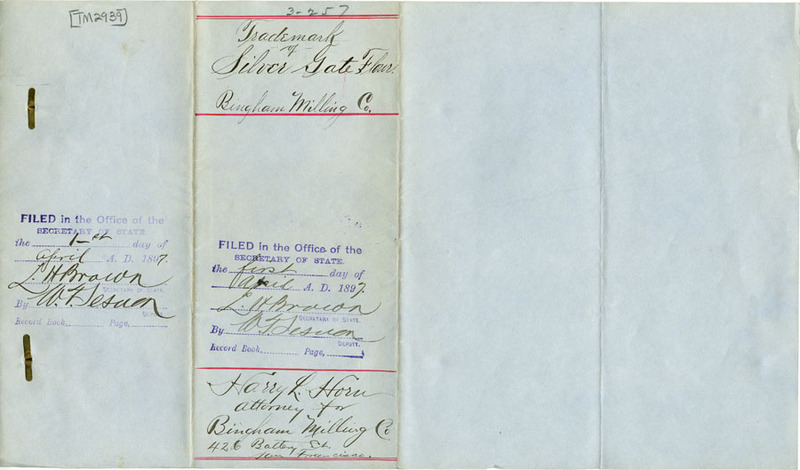 [TM2939]
FILED in the Office of the
SECRETARY OF STATE
the 1st day of
April A. D. 1897.
L. H. Brown
SECRETARY OF STATE.
By W. T. Sesnon
DEPUTY.
Record Book Page,
3-257
Trademark
of
Silver Gate Flour.
Bingham Milling Co.
FILED in the Office of the
SECRETARY OF STATE.
the first day of
April A. D. 1897.
L. H. Brown
SECRETARY OF STATE.
By W. T. Sesnon
DEPUTY.
Record Book Page,
Harry L. Horn
attorney for
Bingham Milling Co
426 Battery St
San Francisco.